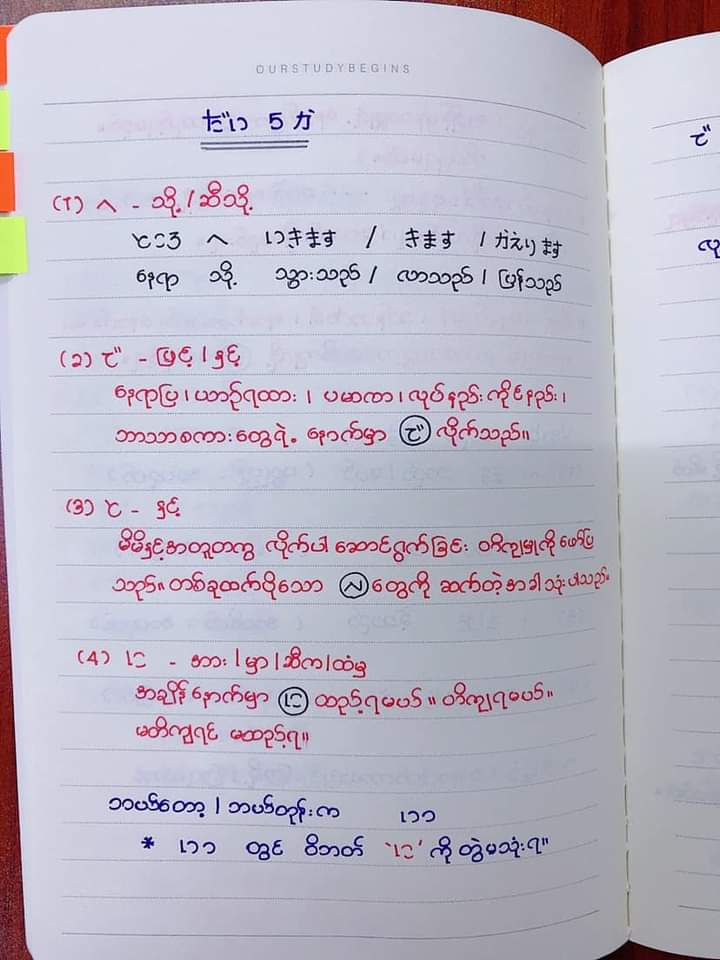 OURSTUDYBEGINS
だい 5 か
(1) へ - သို့ / ဆီသို့
ところ へ いきます / きます / かえります
နေရာ သို့ သွားသည် / လာသည် / ပြန်သည်
(2) で - ဖြင့် / နှင့်
နေရာပြ၊ ယာဉ်ရထား ၊ ပမာဏ ၊ လုပ်နည်းကိုင်နည်း ၊
ဘာသာစကားတွေရဲ့ နောက်မှာ で လိုက်သည်။
(3) と - နှင့်
မိမိနှင့်အတူတကွ လိုက်ပါ ဆောင်ရွက်ခြင်း ပြုမှုကို ဖော်ပြ
သည်။ တစ်ခုထက်ပိုသော N တွေကို ဆက်တဲ့အခါသုံးပါသည်။
(4) に - အား / မှာ / ဆီက / ထံမှ
အချိန်နောက်မှာ に ထည့်ရမယ်။ တိကျရမယ်။
မတိကျရင် မထည့်ရ။
ဘယ်တော့ / ဘယ်တုန်းက いつ
* いつ တွင် ဝိဘတ် 'に' ကို တွဲမသုံးရ။
で
လု